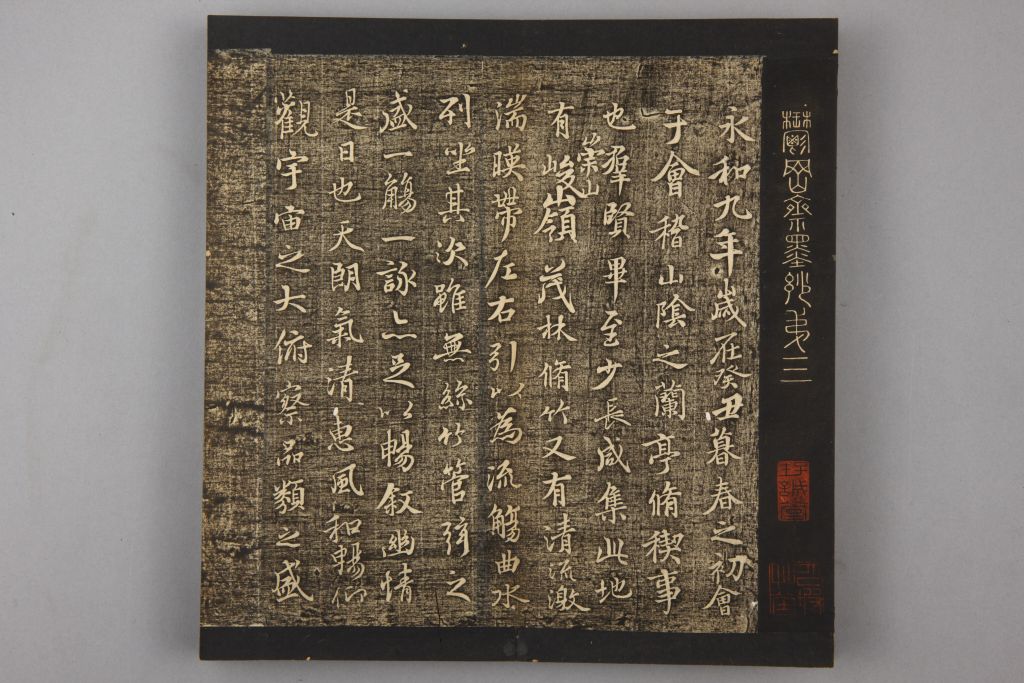 鬱岡齋墨妙三
存誠堂
永和九年歲在癸丑暮春之初會
于會稽山陰之蘭亭脩稧事
也羣賢畢至少長咸集此地
有崇山峻嶺茂林脩竹又有清流激
湍暎帶左右引以為流觴曲水
列坐其次雖無絲竹管弦之
盛一觴一詠亦足以暢敘幽情
是日也天朗氣清惠風和暢仰
觀宇宙之大俯察品類之盛